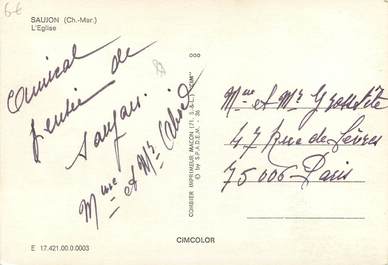 6€
SAUJON (Ch.-Mar.)
L'Eglise
Amical
de
Saujon.
Mme et Mr
Mme et Mr
47 Rue de Sèvres
75006 Paris
COMBIER IMPRIMEUR MACON (71. S.-&-L.) "CIM"
© by S.P.A.D.E.M. - 36
CIMCOLOR
E 17.421.00.0.0003